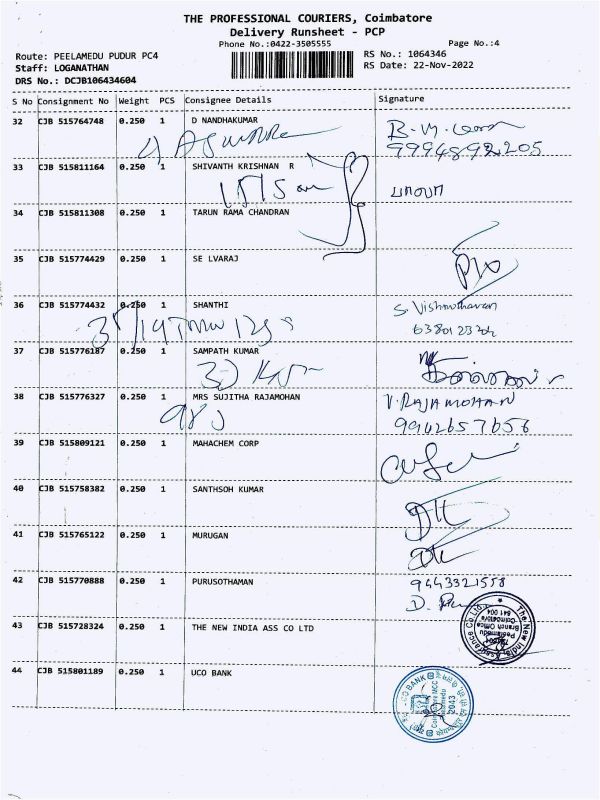 THE PROFESSIONAL COURIERS, Coimbatore
Delivery Runsheet - PCP
Phone No.:0422-3505555
Page No.:4
Route: PEELAMEDU PUDUR PC4
Staff: LOGANATHAN
DRS No.: DCJB106434604
RS No.: 1064346
RS Date: 22-Nov-2022
S No Consignment No Weight PCS Consignee Details Signature
32 CJB 515764748 0.250 1 D NANDHAKUMAR
9994892205
33 CJB 515811164 0.250 1 SHIVANTH KRISHNAN R
34 CJB 515811308 0.250 1 TARUN RAMA CHANDRAN
35 CJB 515774429 0.250 1 SE LVARAJ
36 CJB 515774432 0.250 1 SHANTHI
37 CJB 515776187 0.250 1 SAMPATH KUMAR
38 CJB 515776327 0.250 1 MRS SUJITHA RAJAMOHAN V. RAJAMOHAN
9942657656
39 CJB 515809121 0.250 1 MAHACHEM CORP
40 CJB 515758382 0.250 1 SANTHSOH KUMAR
41 CJB 515765122 0.250 1 MURUGAN
42 CJB 515770888 0.250 1 PURUSOTHAMAN 9443321558
43 CJB 515728324 0.250 1 THE NEW INDIA ASS CO LTD
The New India Assurance Co. Ltd.
Branch Office
Peelamedu
Coimbatore
641 004
44 CJB 515801189 0.250 1 UCO BANK
UCO BANK
2043